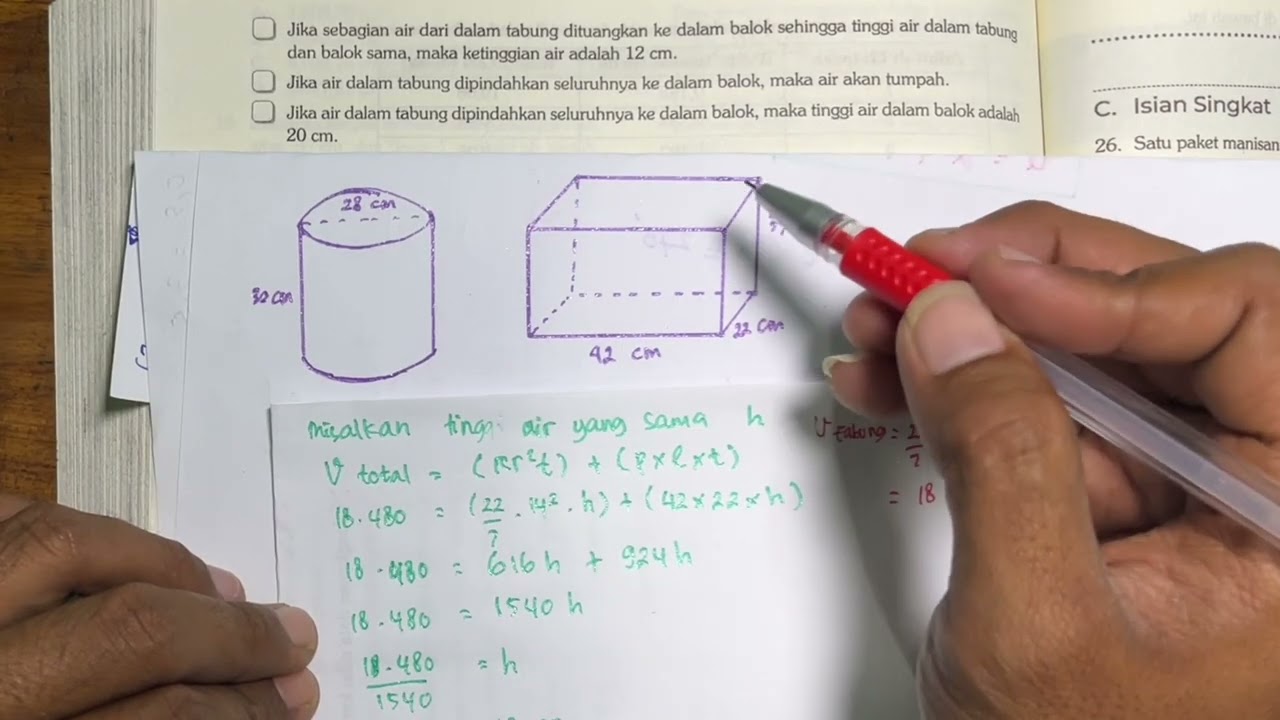 Jika sebagian air dari dalam tabung dituangkan ke dalam balok sehingga tinggi air dalam tabung
dan balok sama, maka ketinggian air adalah 12 cm.
Jika air dalam tabung dipindahkan seluruhnya ke dalam balok, maka air akan tumpah.
Jika air dalam tabung dipindahkan seluruhnya ke dalam balok, maka tinggi air dalam balok adalah
20 cm.
C. Isian Singkat
26. Satu paket manisan
28 cm
30 cm
22 cm
42 cm
misalkan tinggi air yang sama h
V total = (πr²t) + (p x l x t)
18.480 = (22/7 . 14² . h) + (42 x 22 x h)
18.480 = 616h + 924h
18.480 = 1540 h
18.480/1540 = h
V tabung = 2
7
= 18